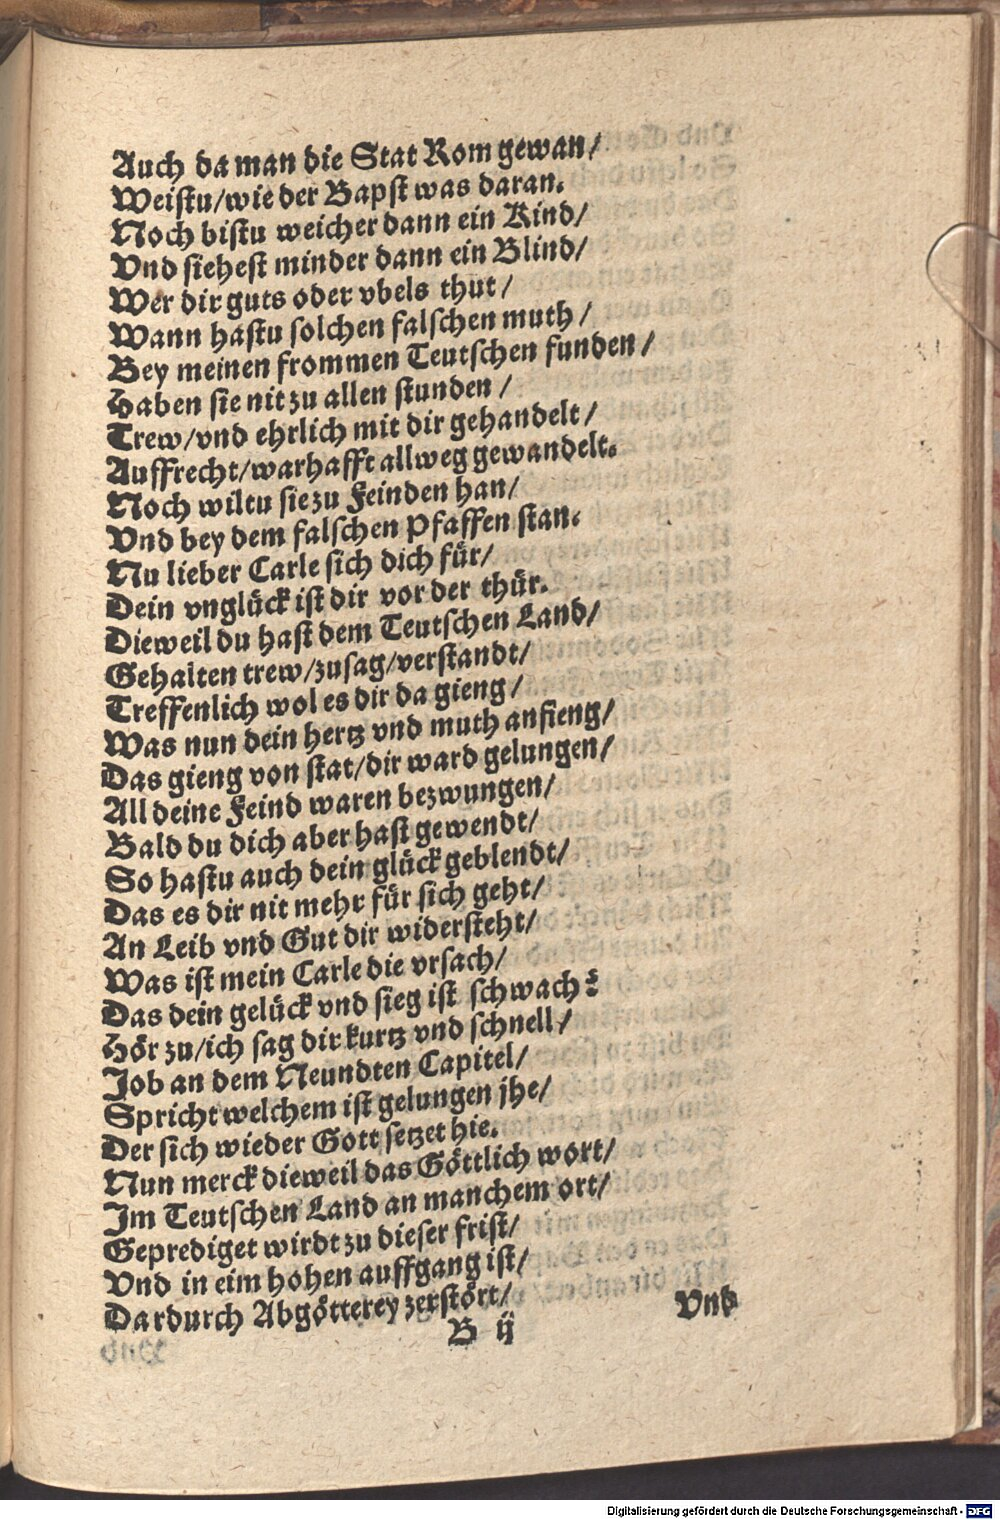 Auch da man die Stat Rom gewan/
Weistu/wie der Bapst was daran.
Noch bistu weicher dann ein Kind/
Vnd siehest minder dann ein Blind/
Wer dir guts oder vbels thut/
Wann hastu solchen falschen muth/
Bey meinen frommen Teutschen funden/
Haben sie nit zu allen stunden/
Trew/vnd ehrlich mit dir gehandelt/
Auffrecht/warhafft allweg gewandelt.
Noch wiltu sie zu Feinden han/
Vnd bey dem falschen Pfaffen stan.
Nu lieber Carle sich dich für/
Dein vnglück ist dir vor der thür.
Dieweil du hast dem Teutschen Land/
Gehalten trew/zusag/verstandt/
Treffenlich wol es dir da gieng/
Was nun dein hertz vnd muth anfieng/
Das gieng von stat/dir ward gelungen/
All deine Feind waren bezwungen/
Bald du dich aber hast gewendt/
So hastu auch dein glück geblendt/
Das es dir nit mehr für sich geht/
An Leib vnd Gut dir widersteht/
Was ist mein Carle die vrsach/
Das dein gelück vnd sieg ist schwach?
Hör zu/ich sag dir kurtz vnd schnell/
Job an dem Neundten Capitel/
Spricht welchem ist gelungen jhe/
Der sich wieder Gott setzet hie.
Nun merck dieweil das Göttlich wort/
Im Teutschen Land an manchem ort/
Geprediget wirdt zu dieser frist/
Vnd in eim hohen auffgang ist/
Dardurch Abgötterey zerstört/
B ij
Vnd
Digitalisierung gefördert durch die Deutsche Forschungsgemeinschaft - DFG